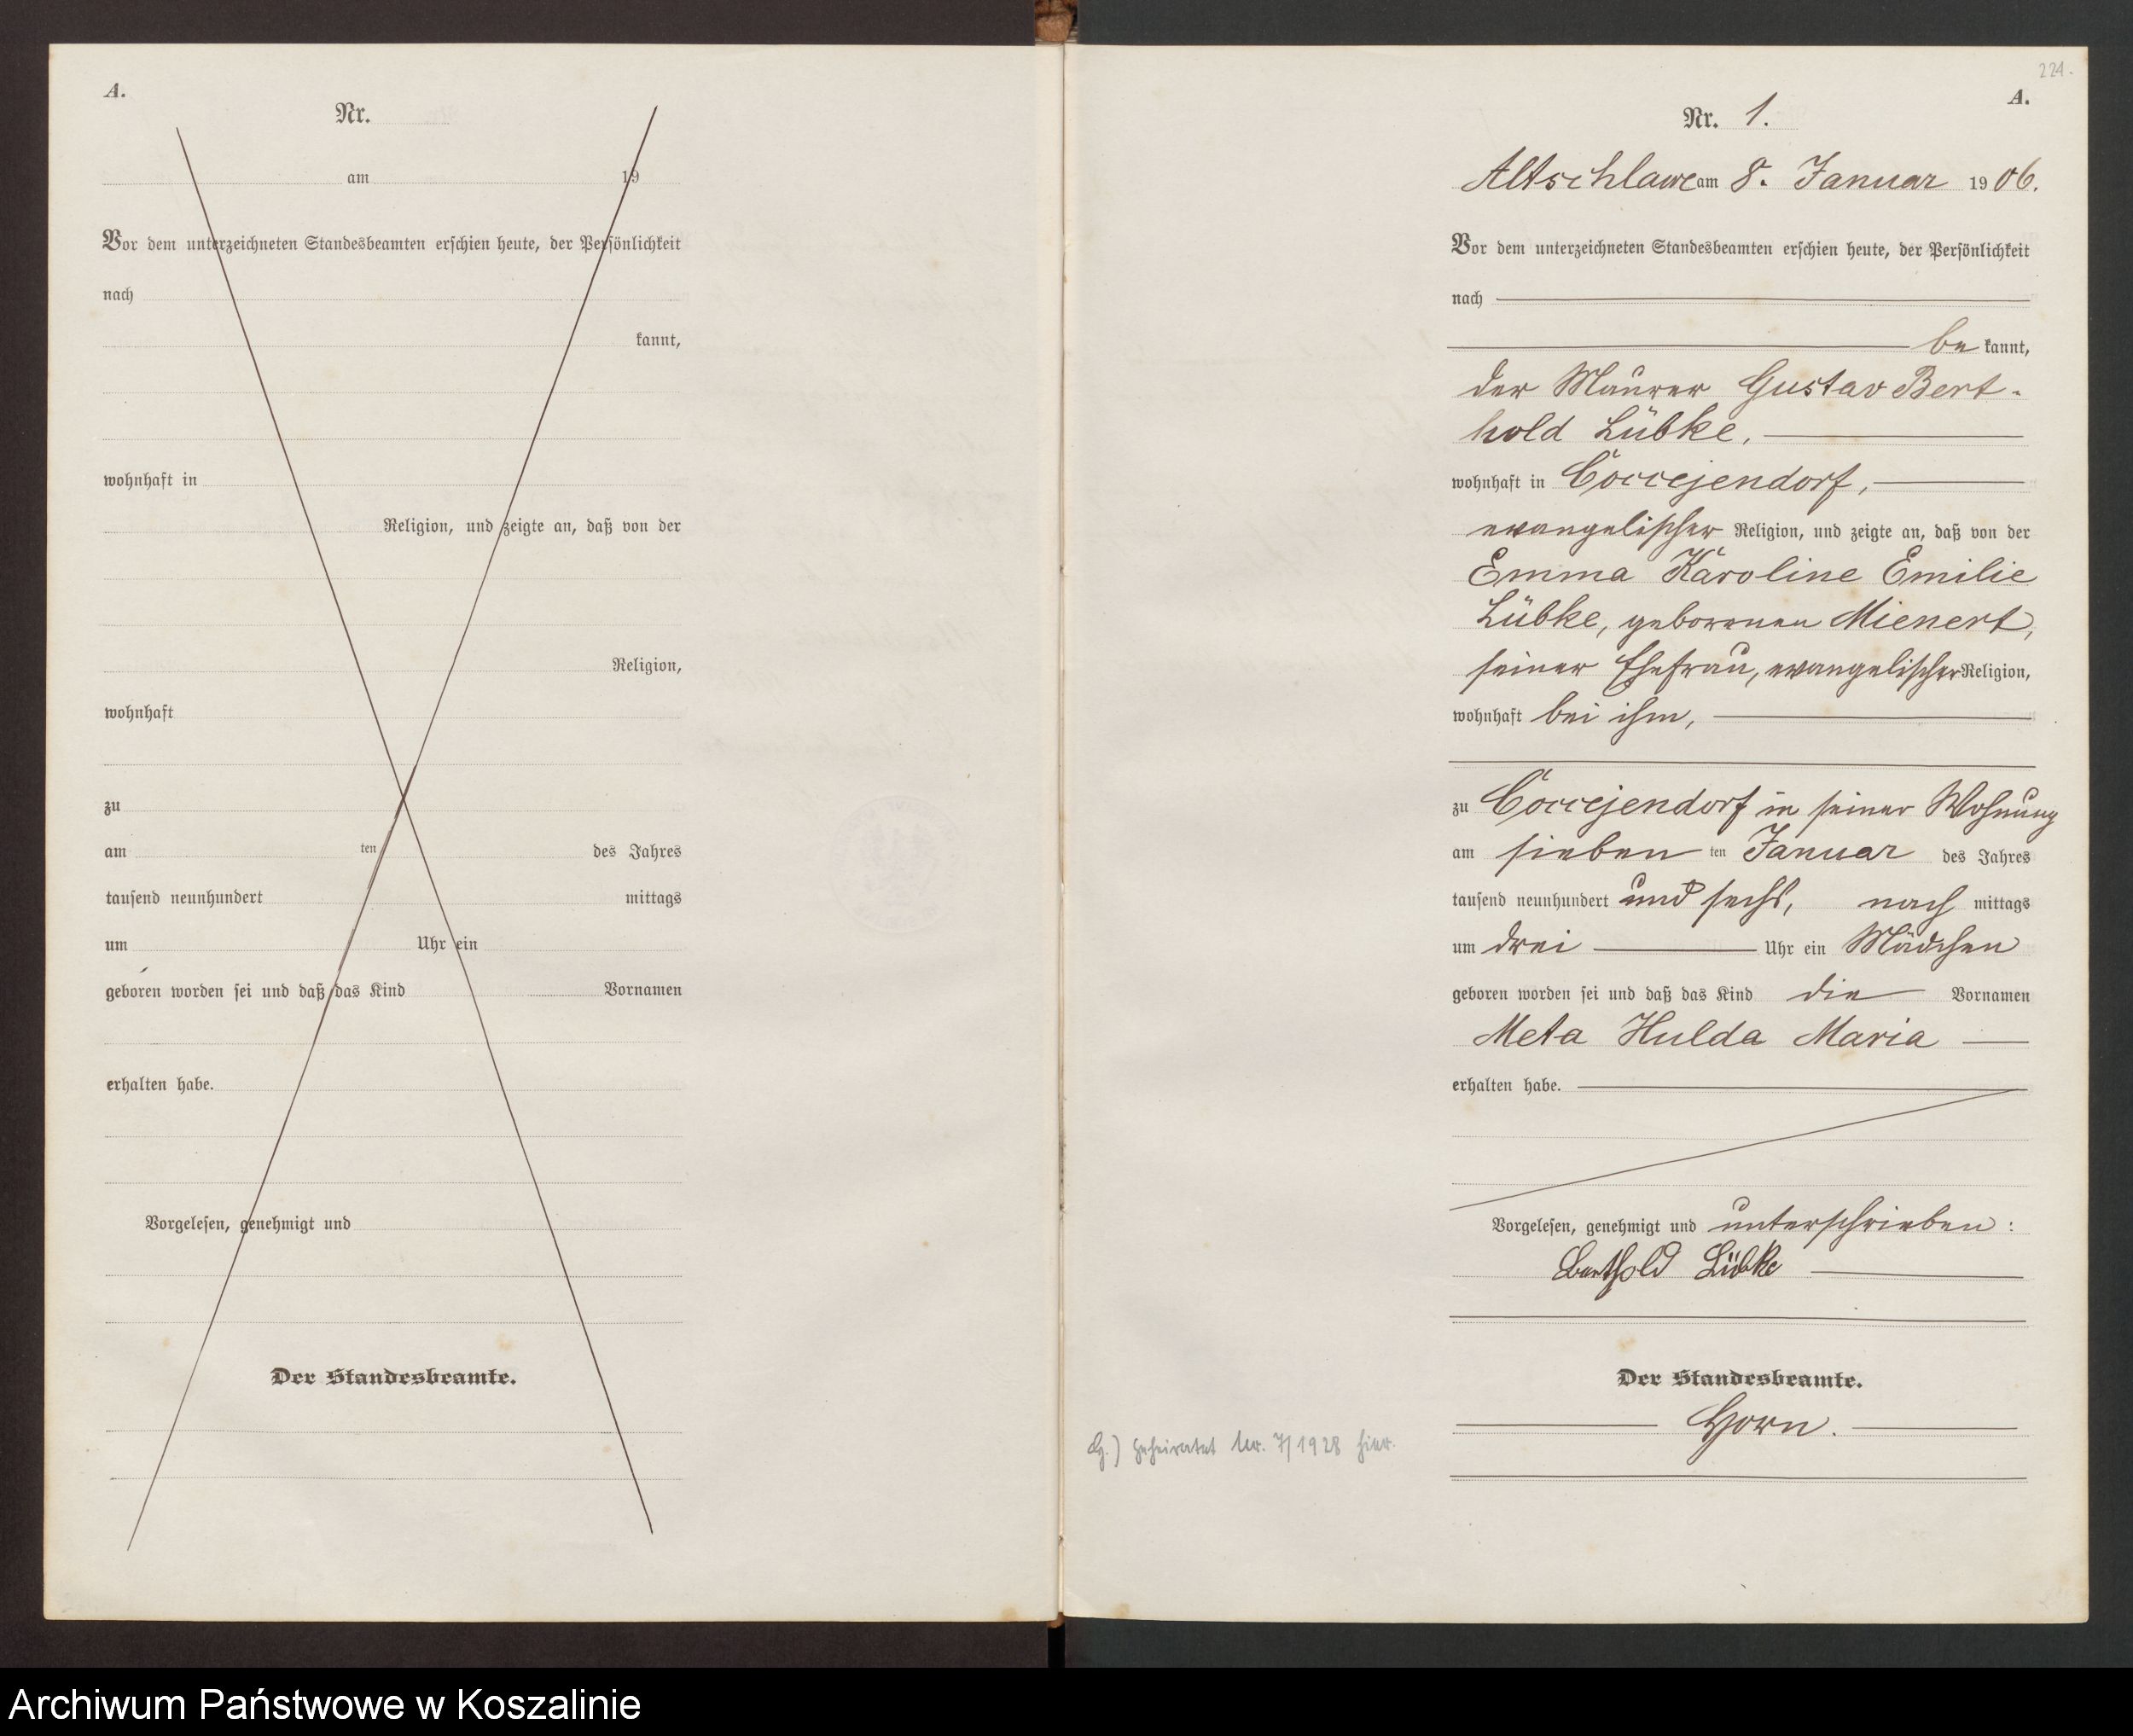 A.
Nr.
am 19
Vor dem unterzeichneten Standesbeamten erschien heute, der Persönlichkeit
nach
kannt,
wohnhaft in
Religion, und zeigte an, daß von der
Religion,
wohnhaft
zu
am ten des Jahres
tausend neunhundert mittags
um Uhr ein
geboren worden sei und daß das Kind Vornamen
erhalten habe.
Vorgelesen, genehmigt und
Der Standesbeamte.
224.
A.
Nr. 1.
Altschlawe am 8. Januar 1906.
Vor dem unterzeichneten Standesbeamten erschien heute, der Persönlichkeit
nach
be kannt,
der Maurer Gustav Bert-
hold Lübke,
wohnhaft in Coccejendorf,
evangelischer Religion, und zeigte an, daß von der
Emma Karoline Emilie
Lübke, geborenen Mienert,
seiner Ehefrau, evangelischer Religion,
wohnhaft bei ihm,
zu Coccejendorf in seiner Wohnung
am sieben ten Januar des Jahres
tausend neunhundert und sechs, nach mittags
um drei Uhr ein Mädchen
geboren worden sei und daß das Kind die Vornamen
Meta Hulda Maria
erhalten habe.
Vorgelesen, genehmigt und unterschrieben:
Berthold Lübke
Der Standesbeamte.
Horn.
G.) geheiratet Nr. 7/1928 hier.
Archiwum Państwowe w Koszalinie